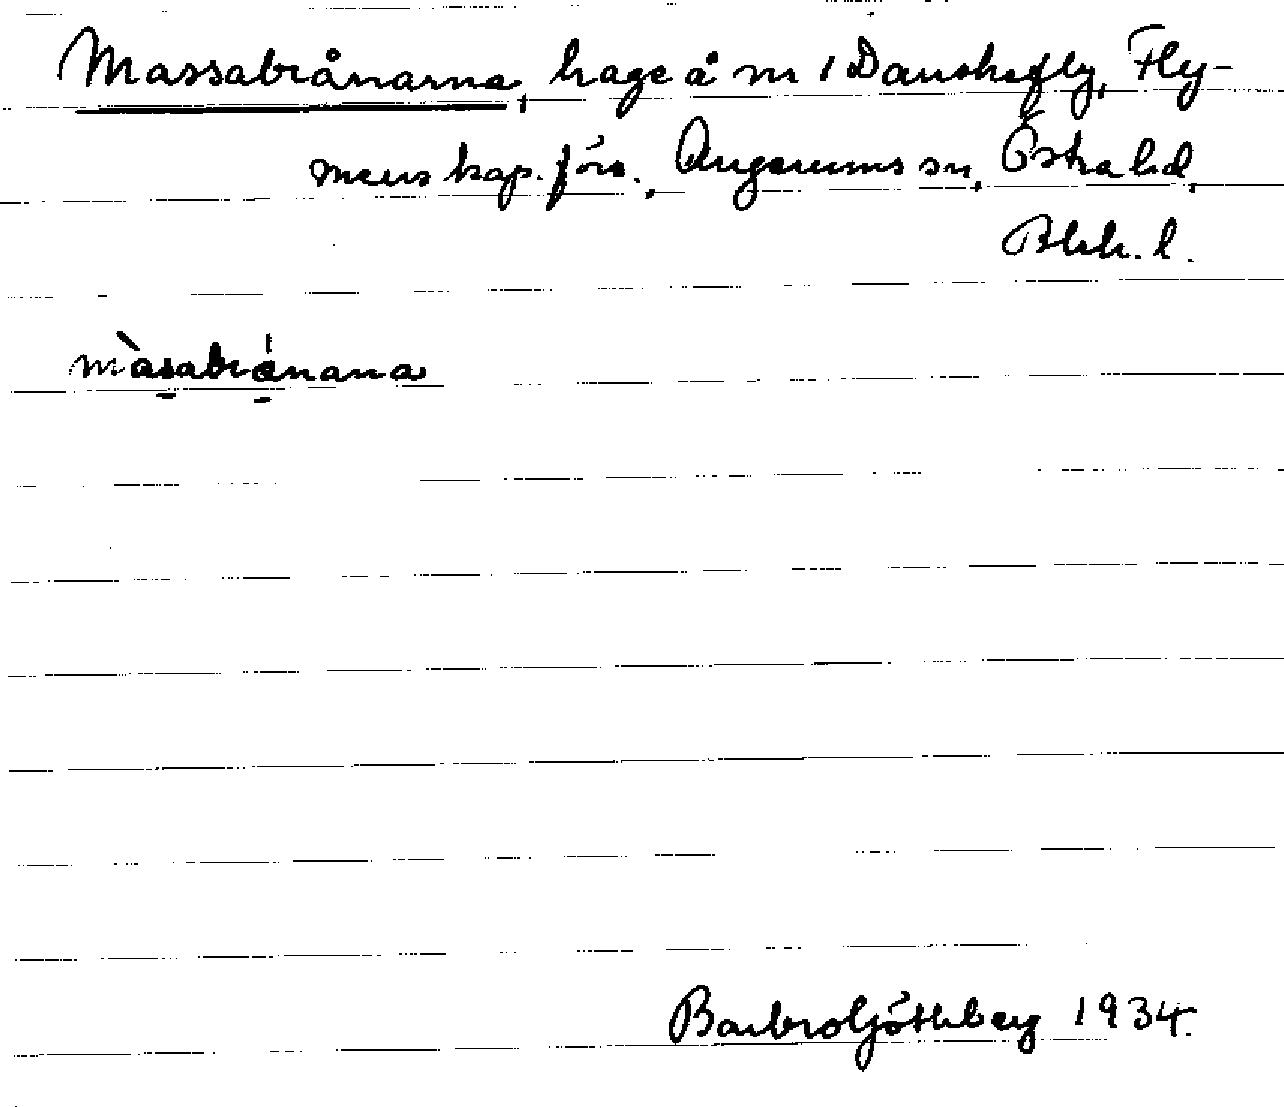 Massabränarna, hage å nr 1 Danskefly, Fly-
mens kap. förs., Augerums sn, Östra hd,
Blek. l.
màsabränana
Barbro Göthberg 1934.